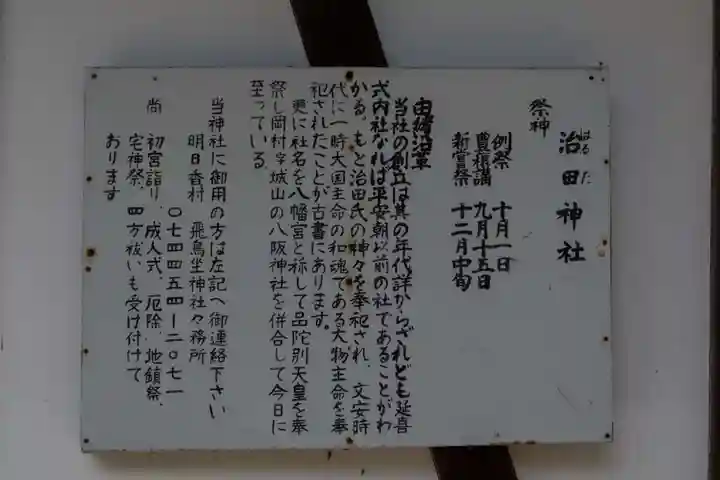 治田神社
はるた
祭神
例祭 十月一日
豊穣講 九月十五日
新嘗祭 十二月中旬
由緒沿革
当社の創立は其の年代詳からざれども延喜
式内社なれば平安朝以前の社であることがわ
かる、もと治田氏の神々を奉祀され、文安時
代に一時大国主命の和魂である大物主命を奉
祀されたことが古書にあります。
更に社名を八幡宮と称して品陀別天皇を奉
祭し岡村字城山の八阪神社を併合して今日に
至っている
当神社に御用の方は左記へ御連絡下さい
明日香村 飛鳥坐神社々務所
〇七四四五四ー二〇七一
尚 初宮詣り、成人式、厄除、地鎮祭、
宅神祭、四方祓いも受け付けて
おります